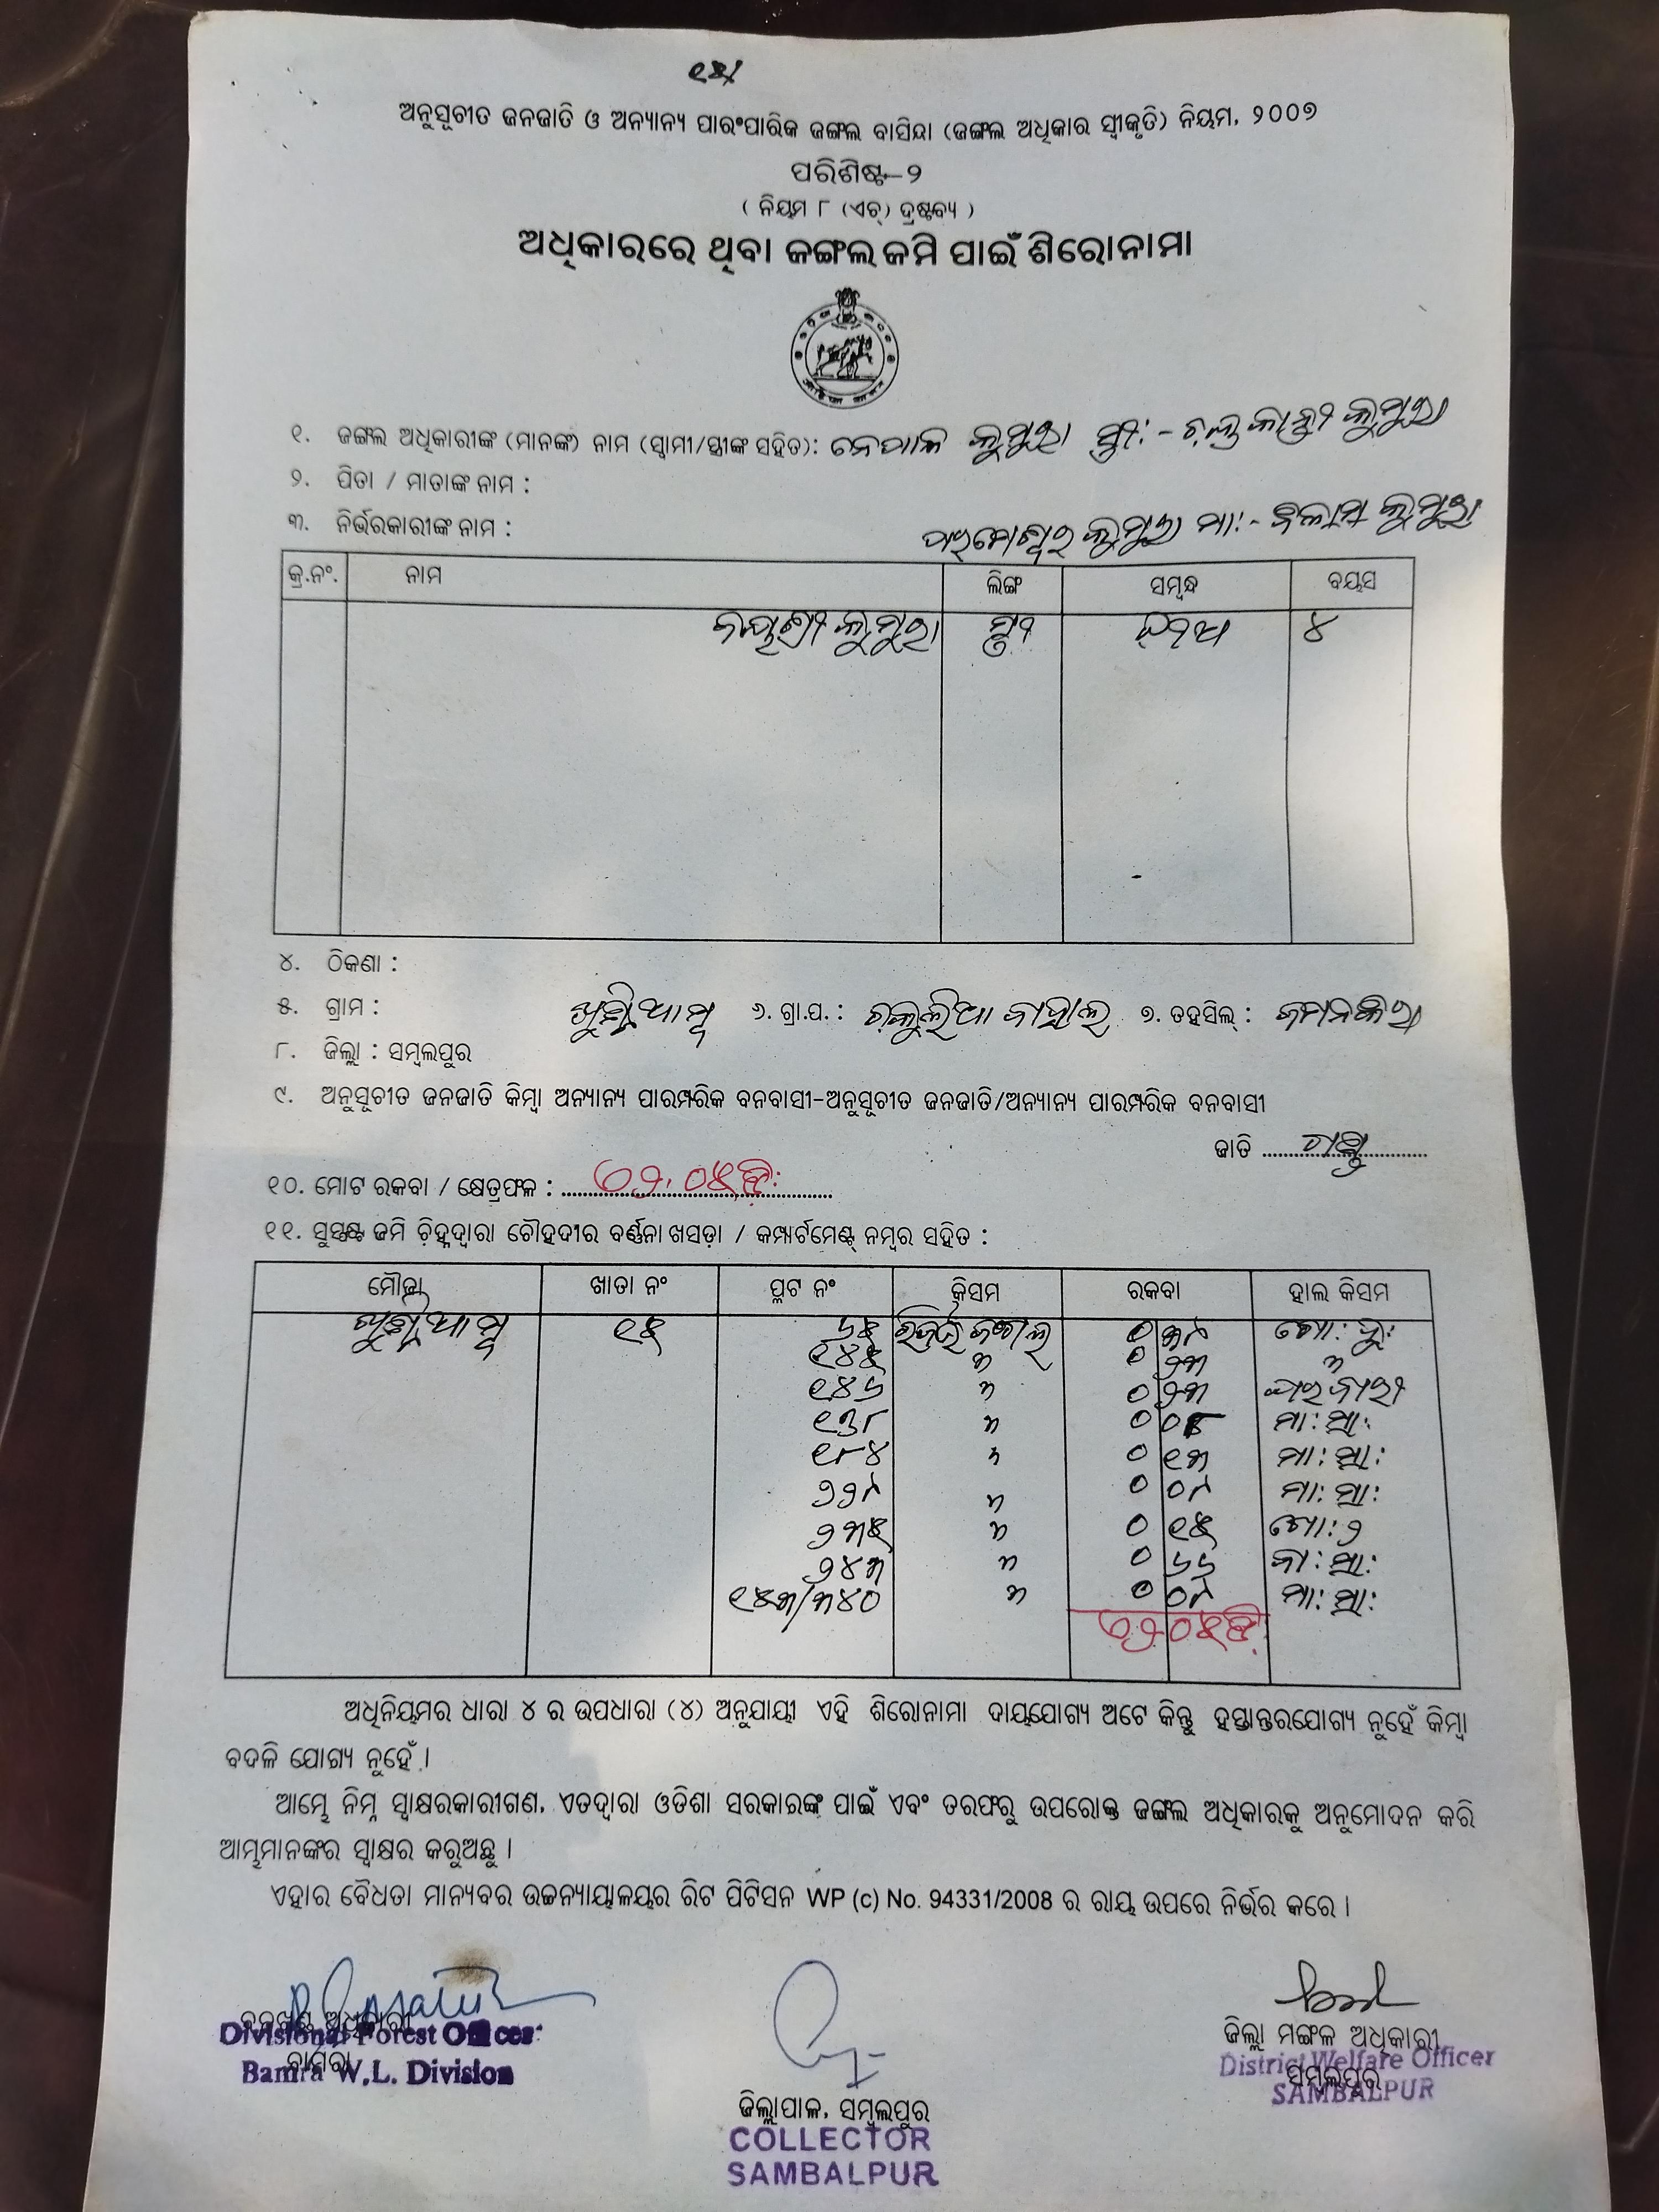 ୧୫/
ଅନୁସୂଚୀତ ଜନଜାତି ଓ ଅନ୍ୟାନ୍ୟ ପାରଂପାରିକ ଜଙ୍ଗଲ ବାସିନ୍ଦା (ଜଙ୍ଗଲ ଅଧିକାର ସ୍ୱୀକୃତି) ନିୟମ, ୨୦୦୭
ପରିଶିଷ୍ଟ-୨
( ନିୟମ ୮ (ଏଚ୍) ଦ୍ରଷ୍ଟବ୍ୟ )
ଅଧିକାରରେ ଥିବା ଜଙ୍ଗଲ ଜମି ପାଇଁ ଶିରୋନାମା
୧. ଜଙ୍ଗଲ ଅଧିକାରୀଙ୍କ (ମାନଙ୍କ) ନାମ (ସ୍ୱାମୀ/ସ୍ତ୍ରୀଙ୍କ ସହିତ): ନେପାଳ କୁମୁରା ସ୍ତ୍ରୀ:- କୁମୁରା
୨. ପିତା / ମାତାଙ୍କ ନାମ :
୩. ନିର୍ଭରକାରୀଙ୍କ ନାମ : କୁମୁରା ମା:- କୁମୁରା
କ୍ର.ନଂ. ନାମ ଲିଙ୍ଗ ସମ୍ବନ୍ଧ ବୟସ
ଜୟଶ୍ରୀ କୁମୁରା ସ୍ତ୍ରୀ ଝିଅ ୪
୪. ଠିକଣା :
୫. ଗ୍ରାମ : ୬. ଗ୍ରା.ପ. : ୭. ତହସିଲ୍ : ଜମନକିରା
୮. ଜିଲ୍ଲା : ସମ୍ବଲପୁର
୯. ଅନୁସୂଚୀତ ଜନଜାତି କିମ୍ବା ଅନ୍ୟାନ୍ୟ ପାରମ୍ପରିକ ବନବାସୀ-ଅନୁସୂଚୀତ ଜନଜାତି/ଅନ୍ୟାନ୍ୟ ପାରମ୍ପରିକ ବନବାସୀ
ଜାତି ....................
୧୦. ମୋଟ ରକବା / କ୍ଷେତ୍ରଫଳ : ୦୨.୦୫ଡି:
୧୧. ସୁସ୍ପଷ୍ଟ ଜମି ଚିହ୍ନଦ୍ୱାରା ଚୌହଦୀର ବର୍ଣ୍ଣନା ଖସଡ଼ା / କମ୍ପାର୍ଟମେଣ୍ଟ୍ ନମ୍ବର ସହିତ :
ମୌଜା ଖାତା ନଂ ପ୍ଲଟ ନଂ କିସମ ରକବା ହାଲ କିସମ
୧୫ ୬୫ ରିଜର୍ଭ ଜଙ୍ଗଲ ୦ ୩୯
୧୪୫ " ୦ ୨୩ "
୧୪୬ " ୦ ୨୩ ଘରବାରୀ
୧୭୮ " ୦ ମା: ସା:
୧୮୪ " ୦ ୧୩ ମା: ସା:
୨୨୯ " ୦ ୦୯ ମା: ସା:
୨୩୫ " ୦ ୧୫
୨୪୩ " ୦ ୬୬ ବା: ସା:
୧୫୩/୩୪୦ " ୦ ୦୯ ମା: ସା:
୦୨ ୦୫ଡି.
ଅଧିନିୟମର ଧାରା ୪ ର ଉପଧାରା (୪) ଅନୁଯାୟୀ ଏହି ଶିରୋନାମା ଦାୟଯୋଗ୍ୟ ଅଟେ କିନ୍ତୁ ହସ୍ତାନ୍ତରଯୋଗ୍ୟ ନୁହେଁ କିମ୍ବା
ବଦଳି ଯୋଗ୍ୟ ନୁହେଁ ।
ଆମ୍ଭେ ନିମ୍ନ ସ୍ୱାକ୍ଷରକାରୀଗଣ, ଏତଦ୍ୱାରା ଓଡିଶା ସରକାରଙ୍କ ପାଇଁ ଏବଂ ତରଫରୁ ଉପରୋକ୍ତ ଜଙ୍ଗଲ ଅଧିକାରକୁ ଅନୁମୋଦନ କରି
ଆମ୍ଭମାନଙ୍କର ସ୍ୱାକ୍ଷର କରୁଅଛୁ ।
ଏହାର ବୈଧତା ମାନ୍ୟବର ଉଚ୍ଚନ୍ୟାୟାଳୟର ରିଟ ପିଟିସନ WP (c) No. 94331/2008 ର ରାୟ ଉପରେ ନିର୍ଭର କରେ ।
ବନଖଣ୍ଡ ଅଧିକାରୀ
Divisional Forest Officer
ବାମରା
Bamra W.L. Division
ଜିଲ୍ଲାପାଳ, ସମ୍ବଲପୁର
COLLECTOR
SAMBALPUR
ଜିଲ୍ଲା ମଙ୍ଗଳ ଅଧିକାରୀ
District Welfare Officer
ସମ୍ବଲପୁର
SAMBALPUR